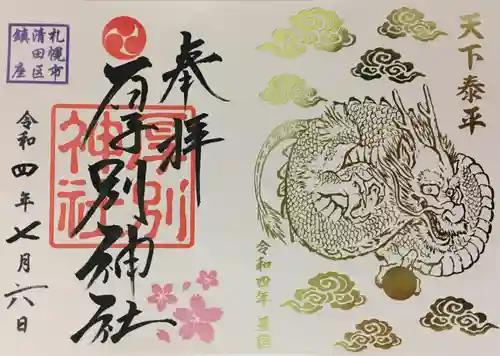 天下泰平
令和四年
奉拝
厚別神社
厚別
神社
札幌市
清田区
鎮座
令和四年七月六日